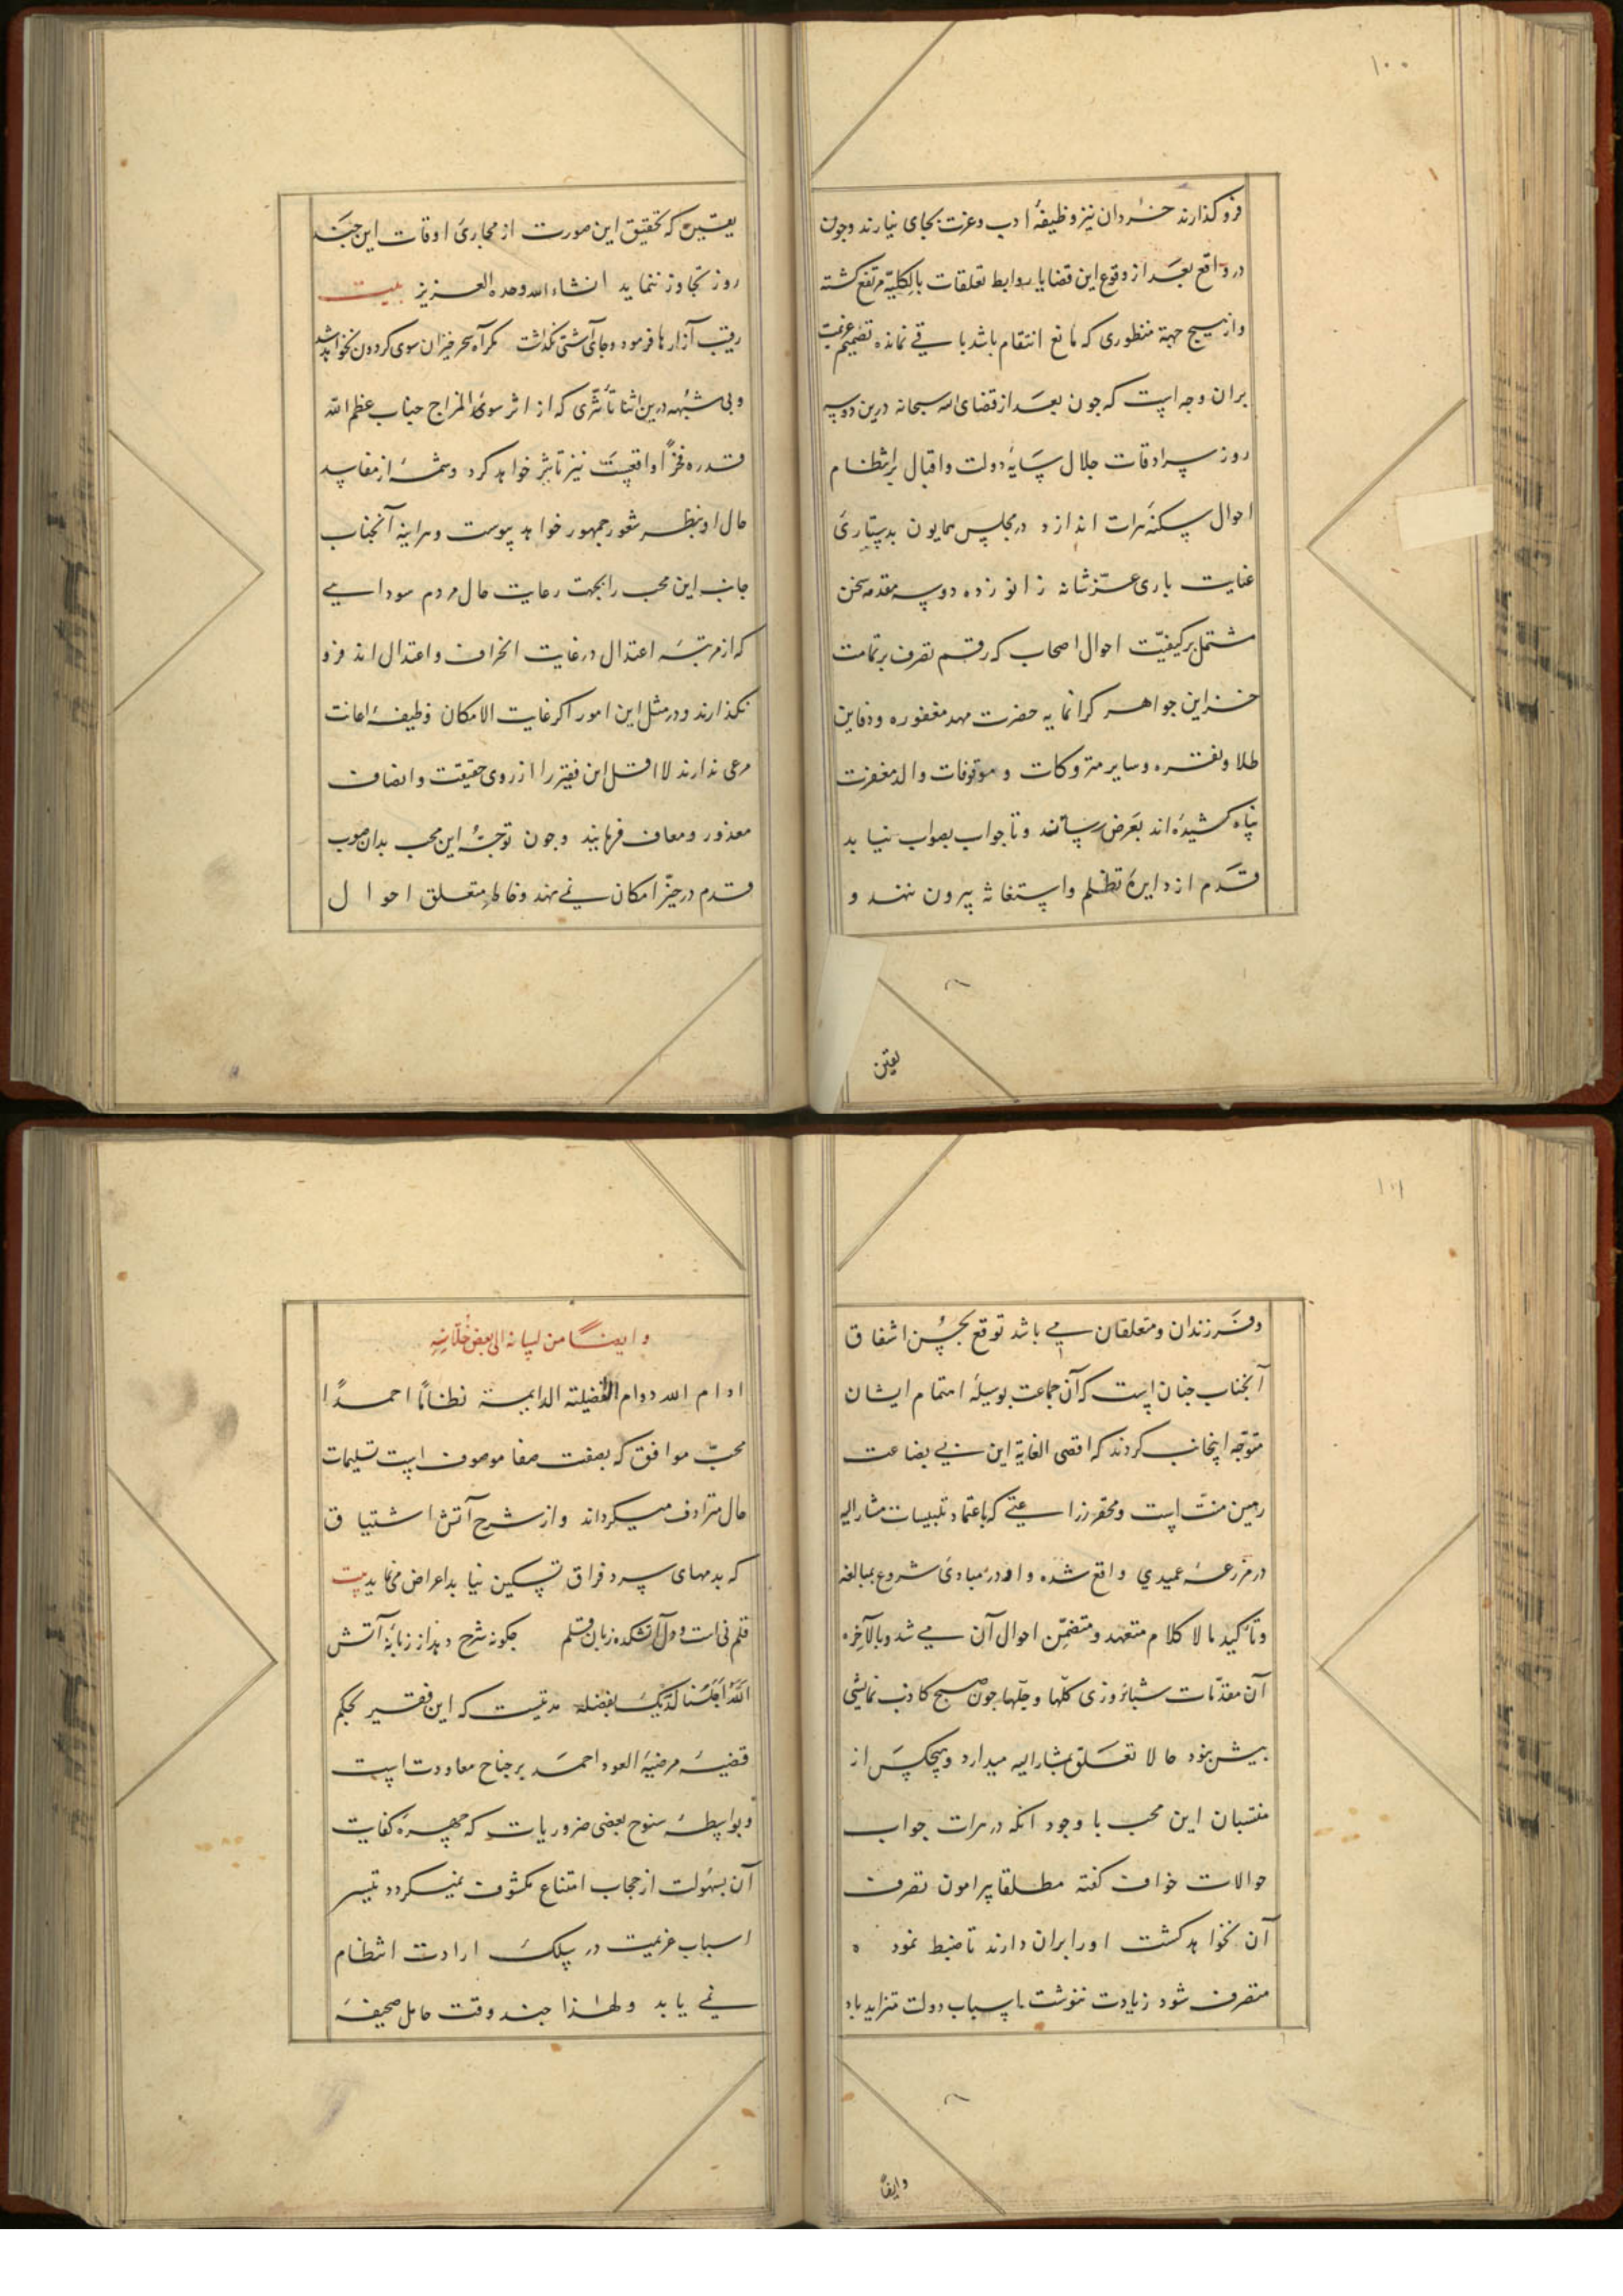 ۱۰۰
فرو گذارند خردان نیز وظیفهٔ ادب و عزت بجای نیارند وجون
در واقع بعد از وقوع این قضایا روابط تعلقات بالکلیّه مرتفع کشته
واز هیچ جهة منظوری که مانع انتقام باشد باقے نمانده تصمیم عزیمت
بران وجه است که جون بعد از قضای الله سبحانه درین دو سه
روز سرادقات جلال سایهٔ دولت واقبال بر انتظام
احوال سکنهٔ هرات اندازد در مجلس همایون بدستیاریٔ
عنایت باری عزّ شانه زانو زده دو سه مقدمه سخن
مشتمل بر کیفیّت احوال اصحاب که رقم تصرف بر تمامت
خزاین جواهر کرانمایه حضرت مهد مغفوره ودفاین
طلا ونقره وسایر متروکات و موقوفات والد مغفرت
پناه کشیده‌اند بعرض رسانند وتا جواب بصواب نیابد
قدم از دایرهٔ تظلم واستغاثه بیرون ننهد و
یقین
یقین که تحقیق این صورت از مجاریٔ اوقات این جند
روز تجاوز ننماید انشاء الله وحده العزیز بیت
رقیب آزارها فرمود وجای آشتی نکذاشت مکر آه سحرخیزان سوی کردون نخواهد شد
وبی شبهه درین اثنا تأثّری که از اثر سوئ المزاج جناب عظم الله
قدره فخرًا واقعست نیز تاثیر خواهد کرد وشمهٔ از مفاسد
حال او بنظر شعور جمهور خواهد پیوست وهرآینه آنجناب
جانب این محب را بجهت رعایت حال مردم سودایے
که از مرتبهٔ اعتدال در غایت انحراف واعتدال اند فرو
نکذارند ودر مثل این امور اکر غایت الامکان وظیفهٔ اعانت
مرعی ندارند لا اقل این فقیر را از روی حقیقت وانصاف
معذور ومعاف فرمایند وجون توجّه این محب بدان صوب
قدم در حیّز امکان نمے نهد وخاطر متعلق احوال
۱۰۱
وفرزندان ومتعلقان مے باشد توقع بحسن اشفاق
آنجناب جنان است که آن جماعت بوسیلهٔ اهتمام ایشان
متوجّه اینجانب کردند که اقصی الغایة این بے بضاعت
رهین منّت است ومحقّر زراعتے که باعتماد تلبیسات مشار الیه
در مزرعهٔ عمیدي واقع شده واو در مبادیٔ شروع بمبالغه
وتاکید مالا کلام متعهد ومتضمّن احوال آن مے شد وبالآخره
آن مقدّمات شبانروزی کلّها وجلّها جون صبح کاذب نمایشی
بیش نبود حالا تعلّق بمشار الیه میدارد وهیچکس از
منتسبان این محب با وجود آنکه در هرات جواب
حوالات خواف کفته مطلقا پیرامون تصرف
آن نخواهد کشت او را بران دارند تا ضبط نموده
متصرف شود زیادت ننوشت اسباب دولت متزاید باد
وایضًا
وایضًا من لسانه الی بعض خلّانِهِ
ادام الله دوام الفضیلة الدایمة نظامًا احمدًا
محبّ موافق که بصفت صفا موصوف است تسلیمات
حال مترادف میکرداند واز شرح آتش اشتیاق
که بدمهای سرد فراق تسکین نیابد اعراض مے نماید بیت
قلم نی است ودل آتشکده زبان قلم جکونه شرح دهد از زبانهٔ آتش
اللّهُمَ اجلسنا لدیک بفضلک مدتیست که این فقیر بحکم
قضیهٔ مرضیهٔ العود احمد بر جناح معاودت است
وبواسطهٔ سنوح بعضی ضروریات که جهرهٔ کفایت
آن بسهولت از حجاب امتناع مکشوف نمیکردد تیسر
اسباب عزیمت در سلک ارادت انتظام
نمے یابد ولهٰذا جند وقت حامل صحیفهٔ